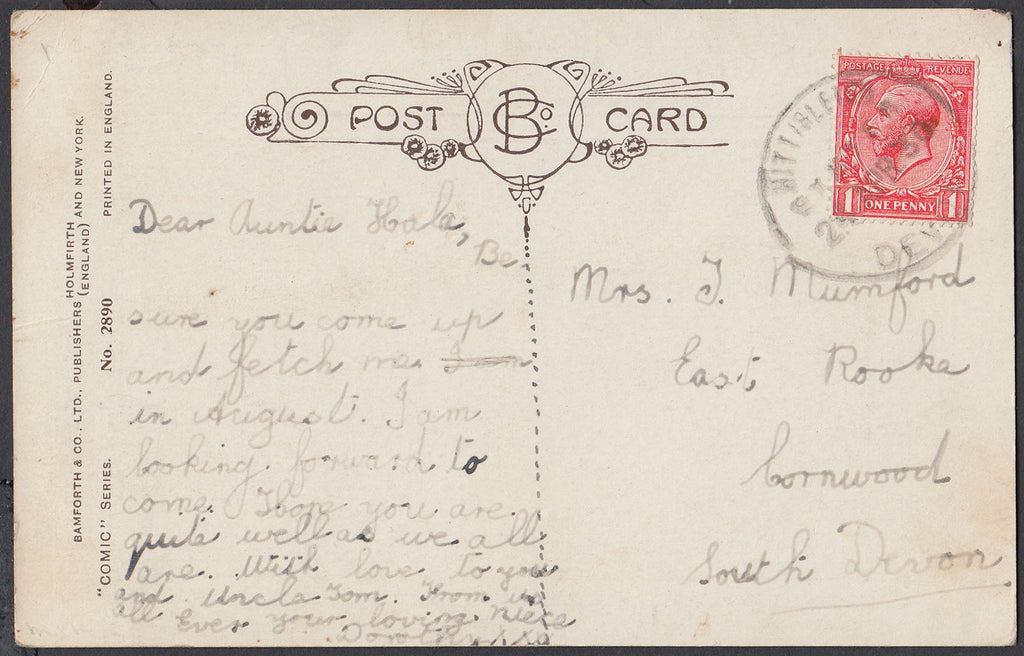 POST CARD
BCo
BAMFORTH & CO., LTD., PUBLISHERS HOLMFIRTH (ENGLAND) AND NEW YORK.
"COMIC" SERIES. No. 2890 PRINTED IN ENGLAND.
POSTAGE REVENUE
1 ONE PENNY 1
DEV
Dear Auntie
Be
sure you come up
and fetch me I am
in August. I am
looking forward to
come. I hope you are
quite well as we all
are. With love to you
and Uncle Tom. From us
all Ever your loving Niece
Dorothy xxx
Mrs. J. Mumford
East Rooke
Cornwood
South Devon.